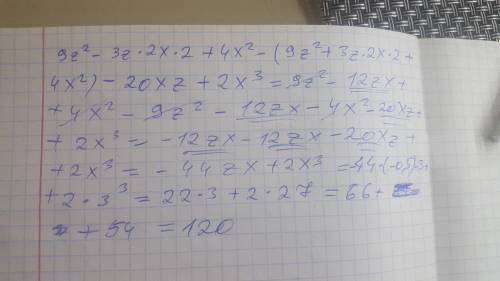 9z² - 3z · 2x · 2 + 4x² - (9z² + 3z · 2x · 2 +
4x²) - 20xz + 2x³ = 9z² - 12zx +
+ 4x² - 9z² - 12zx - 4x² - 20xz +
+ 2x³ = - 12zx - 12zx - 20xz +
+ 2x³ = - 44zx + 2x³ = -44 · (-0,5) · 3 +
+ 2 · 3³ = 22 · 3 + 2 · 27 = 66 +
+ 54 = 120